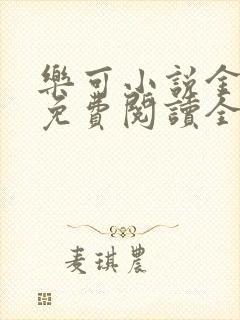 樂可小說全
免費閱讀全
麦琪農